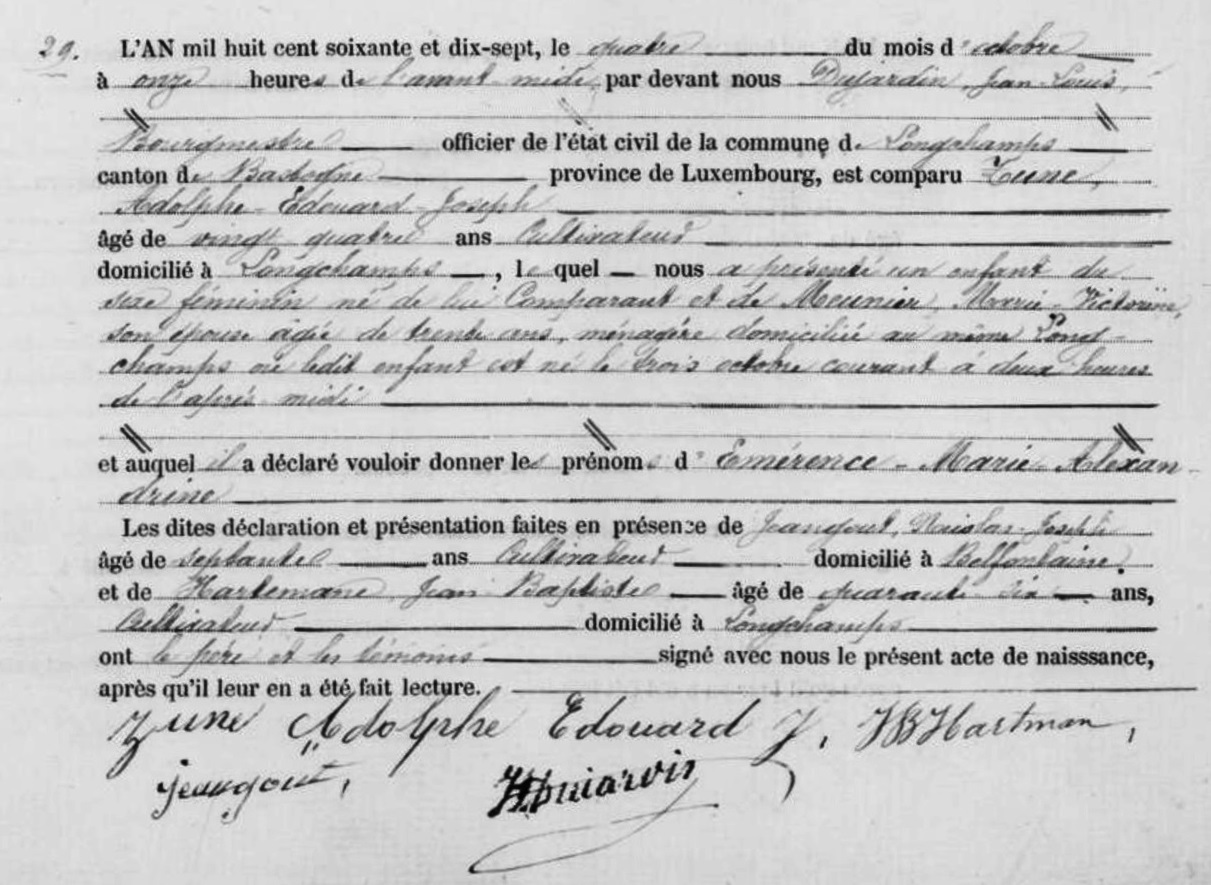 29. L'AN mil huit cent soixante et dix-sept, le quatre du mois d'octobre
à onze heures de l'avant midi, par devant nous Dujardin, Jean-Louis,
Bourgmestre officier de l'état civil de la commune de Longchamps
canton de Bastogne province de Luxembourg, est comparu Zune,
Adolphe-Edouard-Joseph
âgé de vingt quatre ans Cultivateur
domicilié à Longchamps, lequel nous a présenté un enfant du
sexe féminin né de lui Comparant et de Meunier, Marie-Victorine,
son épouse âgée de trente ans, ménagère domiciliée au même Long-
champs où ledit enfant est né le trois octobre courant à deux heures
de l'après-midi
et auquel il a déclaré vouloir donner les prénoms d'Emérence-Marie-Alexan-
drine
Les dites déclaration et présentation faites en présence de Jeangout, Nicolas-Joseph
âgé de septante ans Cultivateur domicilié à Belfontaine.
et de Hartemane, Jean-Baptiste âgé de quarante-six ans,
Cultivateur domicilié à Longchamps
ont le père et les témoins signé avec nous le présent acte de naisssance,
après qu'il leur en a été fait lecture.
Zune Adolphe Edouard J, JBHartman,
jeangout,